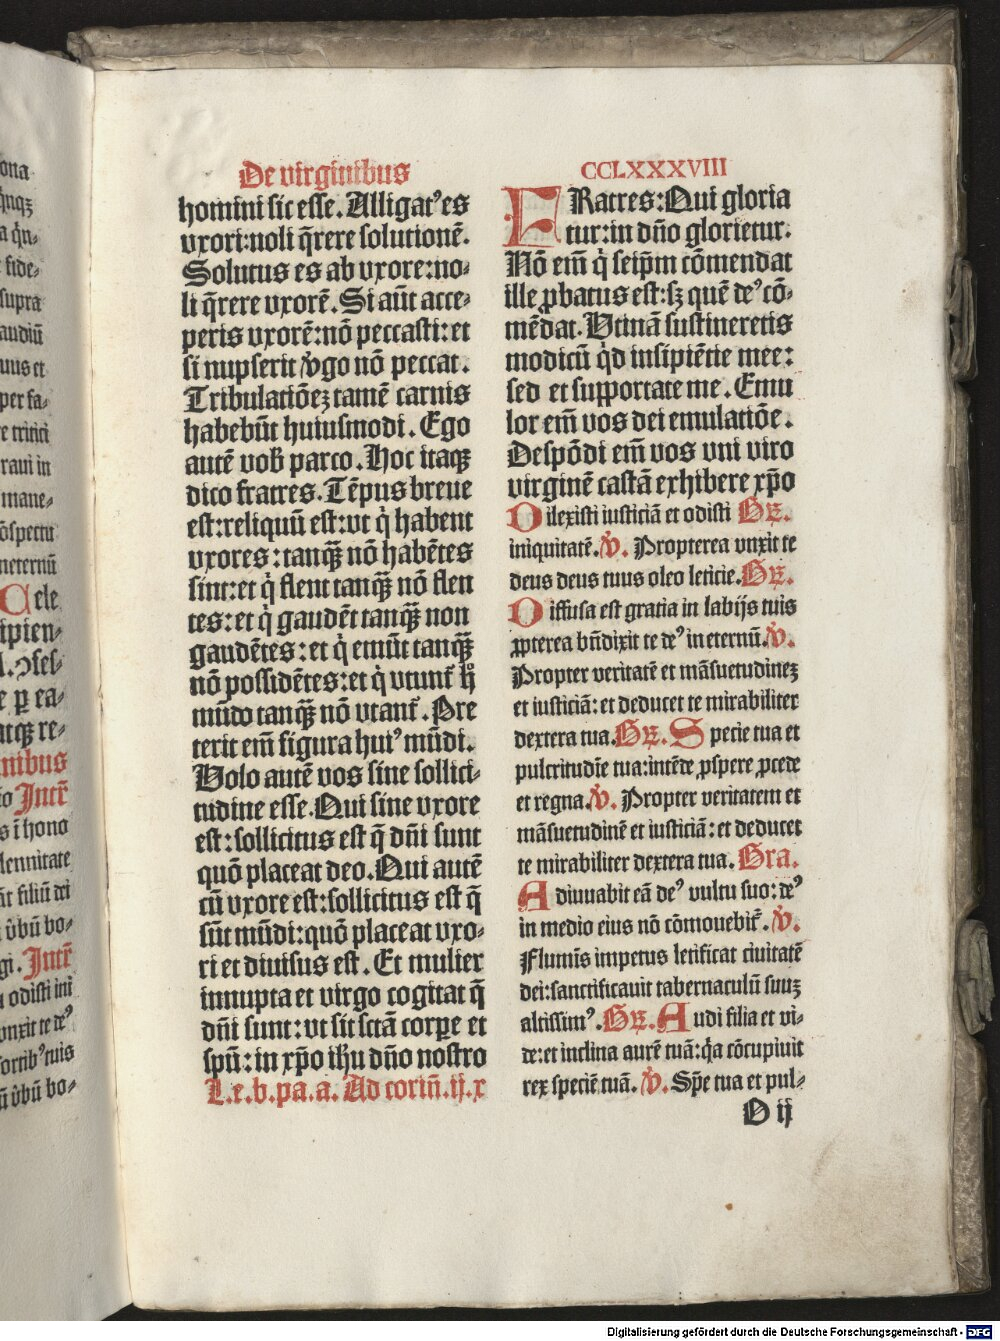 ona
qnqꝫ
a qn-
fide-
supra
audiū
uus et
per fa-
e tritici
raui in
mane-
ōspectu
neternū
Cele
ipien-
ꝯfes-
e ꝑ ea-
atqꝫ re-
nibus
io Intr̄
s ī hono
lennitate
āt filiū dei
ūbū bo-
gi. Intr̄
odisti ini
vnxit te deꝰ
sortibꝰ tuis
ūbū bo-
De virginibus
homini sic esse. Alligatꝰ es
vxori: noli q̄rere solutionē.
Solutus es ab vxore: no-
li q̄rere vxorē. Si aūt acce-
peris vxorē: nō peccasti: et
si nupserit v̄go nō peccat.
Tribulatiōeꝫ tamē carnis
habebūt huiusmodi. Ego
autē vob̄ parco. Hoc itaqꝫ
dico fratres. Tēpus breue
est: reliquū est: vt q̇ habent
vxores: tanqꝫ̄ nō habētes
sint: et q̇ flent tanqꝫ̄ nō flen
tes: et q̇ gaudēt tanqꝫ̄ non
gaudētes: et q̇ emūt tanqꝫ̄
nō possidētes: et q̇ vtunt̄ hͦ
mūdo tanqꝫ̄ nō vtant̄. Pre
terit em̄ figura huiꝰ mūdi.
Volo autē vos sine sollici-
tudine esse. Qui sine vxore
est: sollicitus est q̄ dn̄i sunt
quō placeat deo. Qui autē
cū vxore est: sollicitus est q̄
sūt mūdi: quō placeat vxo-
ri et diuisus est. Et mulier
innupta et virgo cogitat q̄
dn̄i sunt: vt sit sctā corꝑe et
spū: in xp̄o ih̄u dn̄o nostro
L.e.b.pa.a. Ad corin̄.ij.x
CCLXXXVIII
FRatres: Qui gloria
tur: in dn̄o glorietur.
Nō em̄ q̇ seip̄m cōmendat
ille ꝓbatus est: sꝫ quē deꝰ cō-
mēdat. Vtinā sustineretis
modicū q̇d insipiētie mee:
sed et supportate me. Emu
lor em̄ vos dei emulatiōe.
Despōdi em̄ vos vni viro
virginē castā exhibere xp̄o
Dilexisti iusticiā et odisti Gꝛ̄.
iniquitatē. V̇. Propterea vnxit te
deus deus tuus oleo leticie. Gꝛ̄.
Diffusa est gratia in labijs tuis
ꝓpterea bn̄dixit te deꝰ in eternū. V̇.
Propter veritatē et māsuetudineꝫ
et iusticiā: et deducet te mirabiliter
dextera tua. Gꝛ̄. Specie tua et
pulcritudīe tua: intēde ꝓspere ꝓcede
et regna. V̇. Propter veritatem et
māsuetudinē et iusticiā: et deducet
te mirabiliter dextera tua. Gra.
Adiuuabit eā deꝰ vultu suo: deꝰ
in medio eius nō cōmouebit̄. V̇.
Flumīs impetus letificat ciuitatē
dei: sanctificauit tabernaculū suuꝫ
altissimꝰ. Gꝛ̄. Audi filia et vi-
de: et inclina aurē tuā: q̇a cōcupiuit
rex speciē tuā. V̇. Sp̄e tua et pul-
O ij
Digitalisierung gefördert durch die Deutsche Forschungsgemeinschaft - DFG